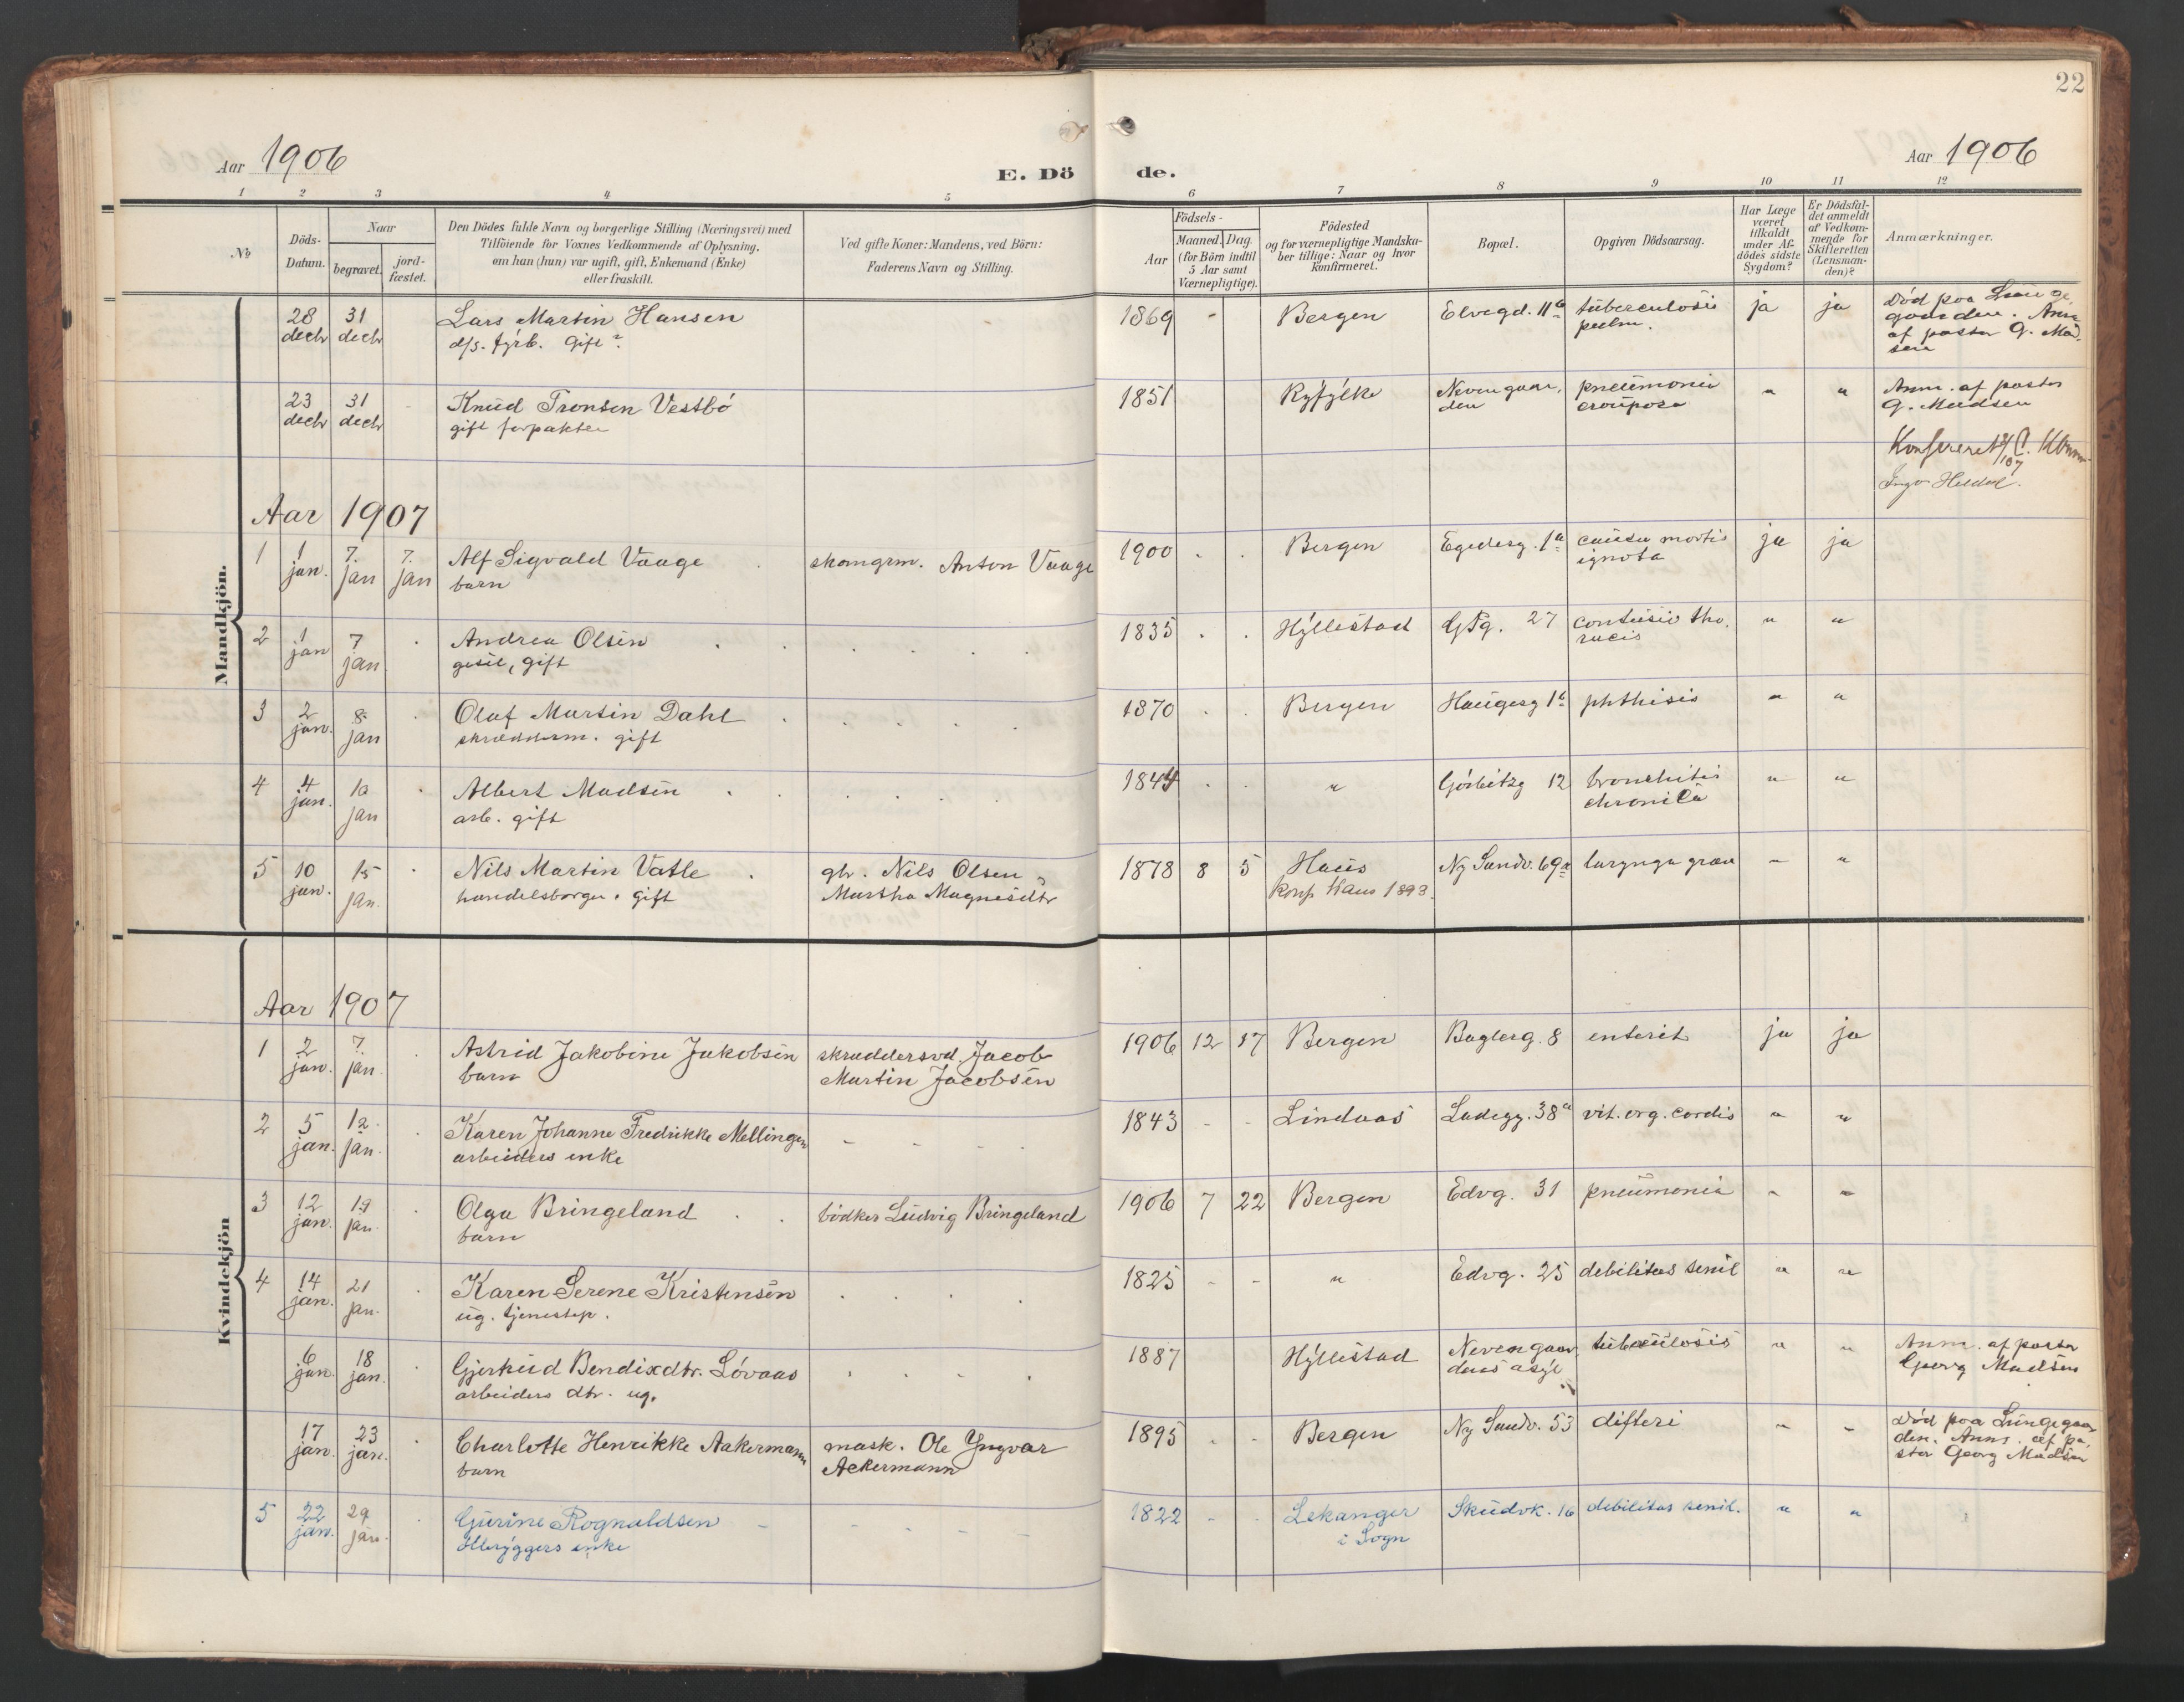 22
Aar 1906
E. Dö de.
Aar 1906
1 2 3 4 5 6 7 8 9 10 11 12
№
Döds-
Datum.
Naar
begravet.
jord-
fæstet.
Den Dödes fulde Navn og borgerlige Stilling (Næringsvei) med
Tilföiende for Voxnes Vedkommende af Oplysning,
om han (hun) var ugift, gift, Enkemand (Enke)
eller fraskilt.
Ved gifte Koner: Mandens, ved Börn:
Faderens Navn og Stilling.
Födsels-
Aar
Maaned. Dag.
(for Börn indtil
5 Aar samt
Værnepligtige).
Födested
og for værnepligtige Mandska-
ber tillige: Naar og hvor
konfirmeret.
Bopæl.
Opgiven Dödsaarsag.
Har Læge
været
tilkaldt
under Af-
dödes sidste
Sygdom?
Er Dödsfal-
det anmeldt
af Vedkom-
mende for
Skifteretten
(Lensman-
den)?
Anmærkninger.
Mandkjön.
28 31 Lars Martin Hansen 1869 - Bergen Elvegd. 11a tuberculosis ja ja Död paa Lunge-
decbr decbr d/s. fyrb. Gift pulm. gaarden. Anm.
af pastor G. Mad-
sen
23 31 - Knud Tronsen Vestbö 1851 Ryfylke Nevengaar- pneumonia " " Anm. af pastor
decbr decbr gift forpakter den crouposa G. Madsen
Konfereret
Aar 1907
1 1 7. 7. Alf Sigvald Vaage skomgrm. Anton Vaage 1900 . . Bergen Egedesg. 1a causa mortis ja ja
jan. jan jan barn ignota
2 1 7 . Andrea Olsen 1835 . . Hyllestad 27 contusio tho- " "
jan jan gift racis
3 2 8 . Olaf Martin Dahl 1870 . . Bergen Haugesg phthisis " "
jan. jan skrædderm. gift
4 4 10 . Albert Madsen 1844 . . " Görbitzg 12 bronchitis " "
jan. jan arb. gift chronica
5 10 15 . Nils Martin Vatle gbr. Nils Olsen 1878 8 5 Haus Ny Sandv. 69a " "
jan. jan. handelsborger. gift Martha Magnesdtr konf. Haus 1893.
Kvindekjön
Aar 1907
1 2 7. Astrid Jakobine Jakobsen skræddersvd. Jacob 1906 12 17 Bergen Baglerg. 8 enterit ja ja
jan. jan. barn Martin Jacobsen
2 5 12. . Karen Johanne Fredrikke Mellingen 1843 - - Lindaas Ladegg. 38a vit. org. cordis " "
jan. jan. arbeiders enke
3 12 19 . Olga Bringeland bödker Ludvig Bringeland 1906 7 22 Bergen Edvg. 31 pneumonia " "
jan. jan. barn
4 14 21 . Karen Serene Kristensen 1825 - - " Edvg. 25 debilitas senil " "
jan. jan. ug. tjenestep.
6 18 . Gjertrud Bendixdtr. Lövaas 1887 Hyllestad Nevengaar- tuberculosis " " Anm. af pastor
jan. jan. arbeiders dtr. ug. dens asyl Georg Madsen
17 23 . Charlotte Henrikke Aakermann mask. Ole Yngvar 1895 . - Bergen Ny Sandv. 53 difteri " " Död paa Lungegaar-
jan. jan. barn Ackermann den. Anm. af pa-
stor Georg Madsen
5 22 29 . Gurine Rognaldsen 1822 - . Lekanger Skudvk. 16 debilitas senil. " "
jan. jan. ölbryggers enke i Sogn